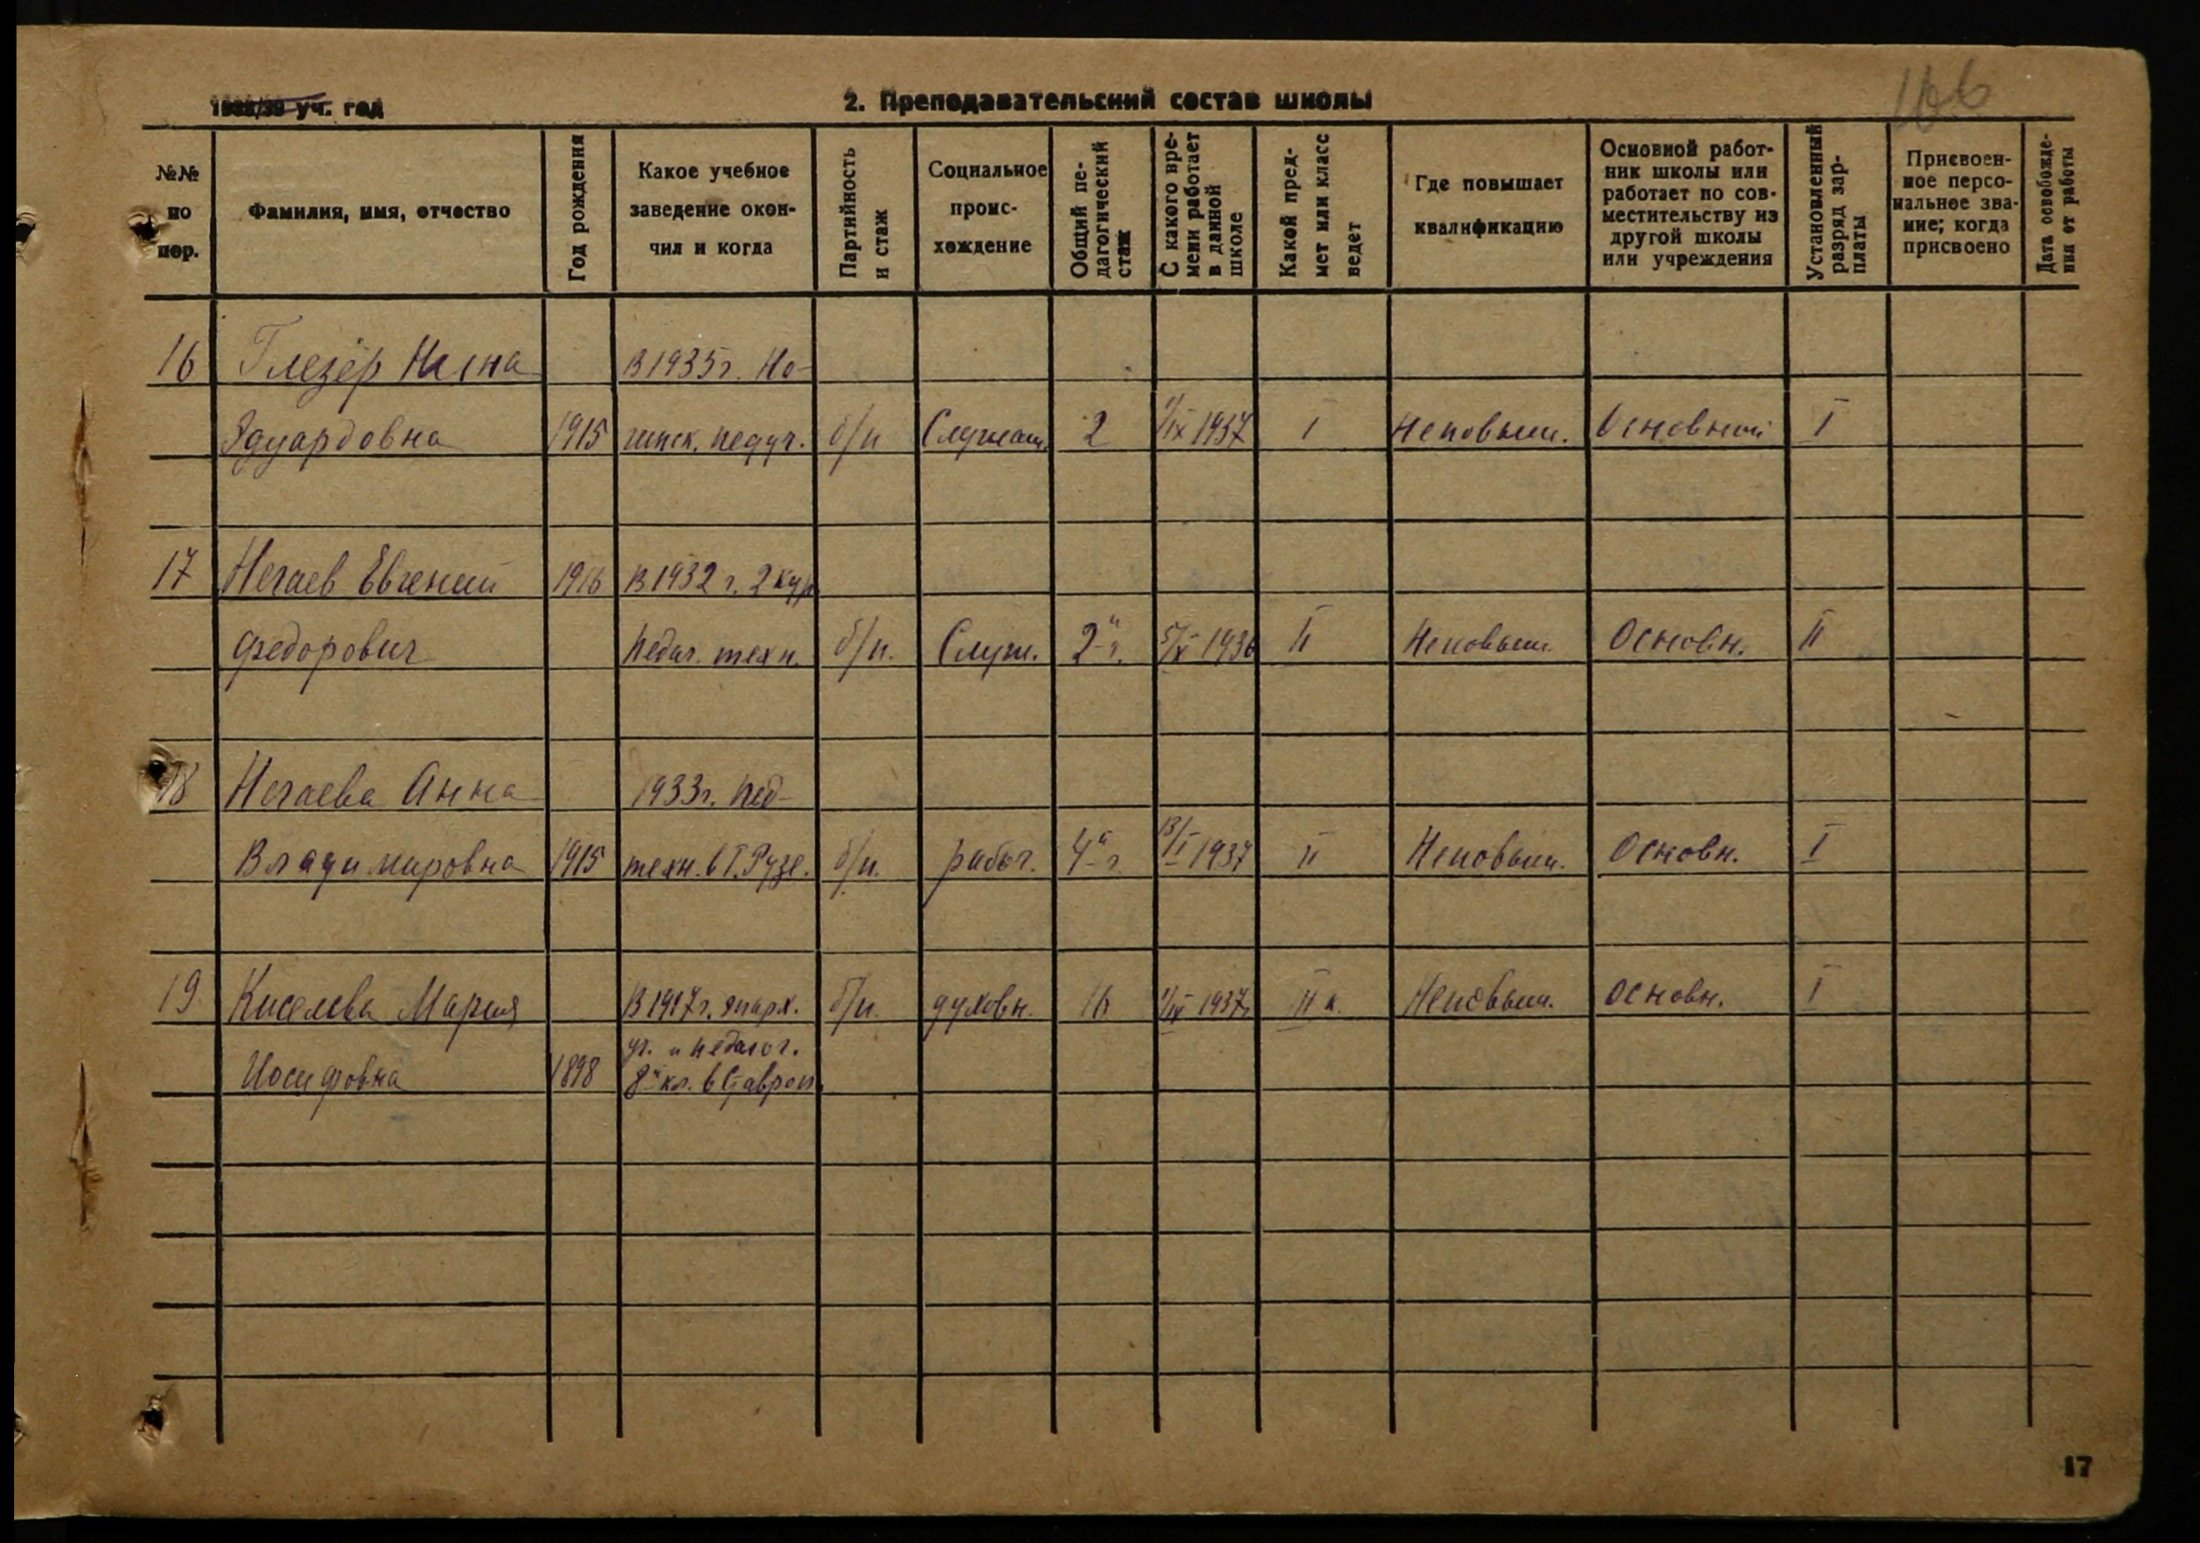 1938/39 уч. год
2. Преподавательский состав школы
166
№№ по пор.
Фамилия, имя, отчество
Год рождения
Какое учебное заведение окончил и когда
Партийность и стаж
Социальное происхождение
Общий педагогический стаж
С какого времени работает в данной школе
Какой предмет или класс ведет
Где повышает квалификацию
Основной работник школы или работает по совместительству из другой школы или учреждения
Установленный разряд зарплаты
Присвоенное персональное звание; когда присвоено
Дата освобождения от работы
16 Глезер Нина В 1935г. Но-
Эдуардовна 1915 гинск. педуч. б/п Служащ. 2 1/IX 1937 I Неповыш. Основной I
17 Нечаев Евгений 1916 В 1932 г. 2 кур
Федорович Педаг. техн. б/п. Служ. 2-й г. 5/X 1936 II Неповыш. Основн. II
18 Нечаева Анна 1933г. пед-
Владимировна 1915 техн. в г. Рузе. б/п. рабоч. 4-й г 13/I 1937 II Неповыш. Основн. I
19 Киселева Мария В 1917 г. епарх. б/п. духовн. 16 1/IX 1937г. II к. Неповыш. основн. I
уч. и педагог.
Иосифовна 1898 8й кл. в Ставроп.
17